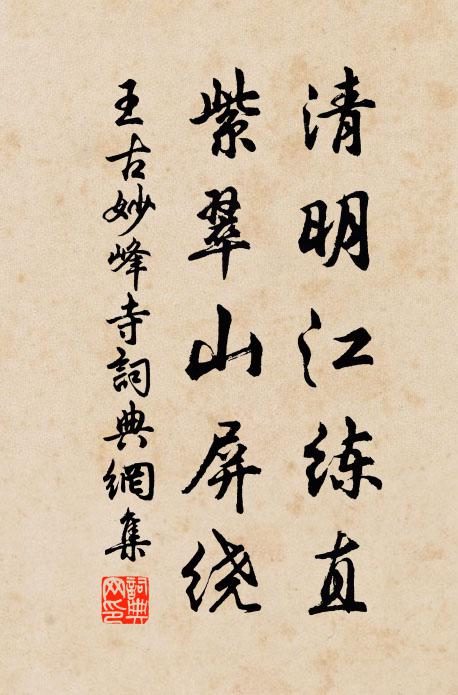 清明江练直
紫翠山屏绕
王古妙峰寺詞典網集
詞典网印